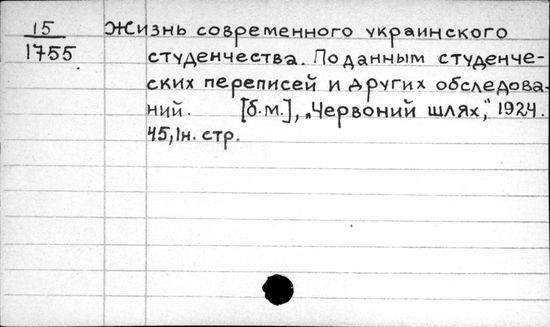 15
1755
Жизнь современного украинского
студенчества. По данным студенче-
ских переписей и других обследова-
ний. [б.м.], „Червоний шлях," 1924.
45,1н. стр.